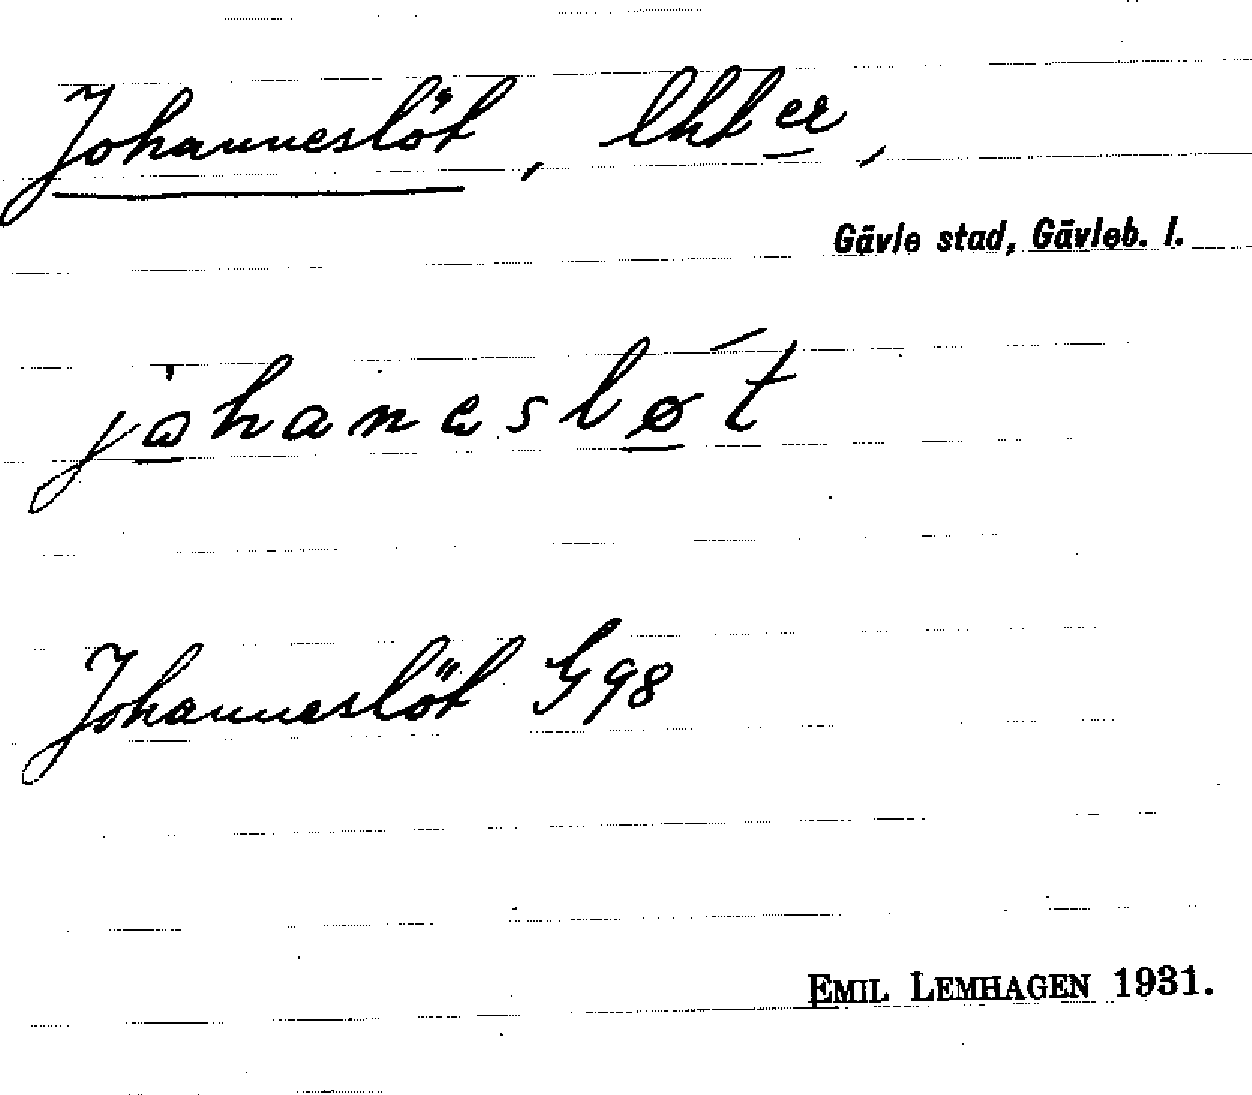 Johanneslöt, lht er,
Gävle stad, Gävleb. l.
johanesløt
Johanneslöt G98
EMIL LEMHAGEN 1931.